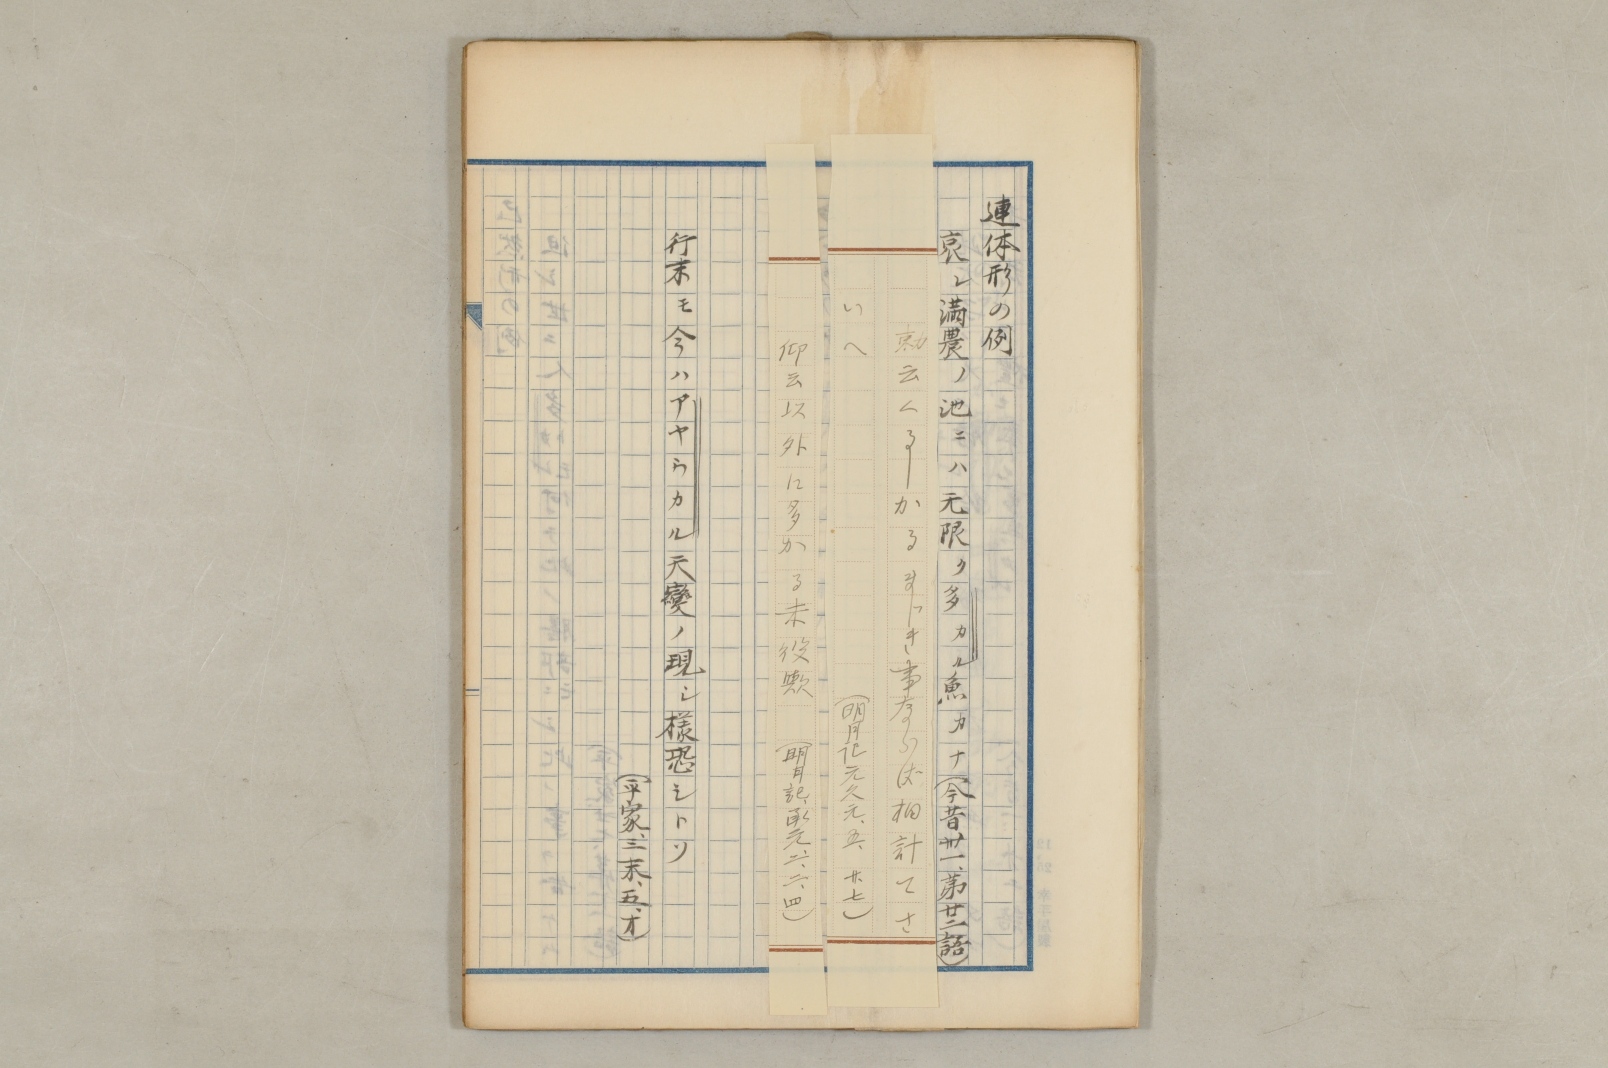 連体形の例
哀レ満農ノ池ニハ元限ク多カル魚カナ(今昔卅一、第廿二語)
勅云くるしかるましき事ならは相計てさ
いへ
(明月記元久元、五、廿七)
仰云以外に多かる未役歟 (明月記、承元二、二、四)
行末モ今ハアヤウカル天變ノ現シ様恐シトソ
(平家、三末、五、オ)